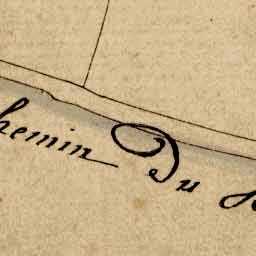 hemin Du